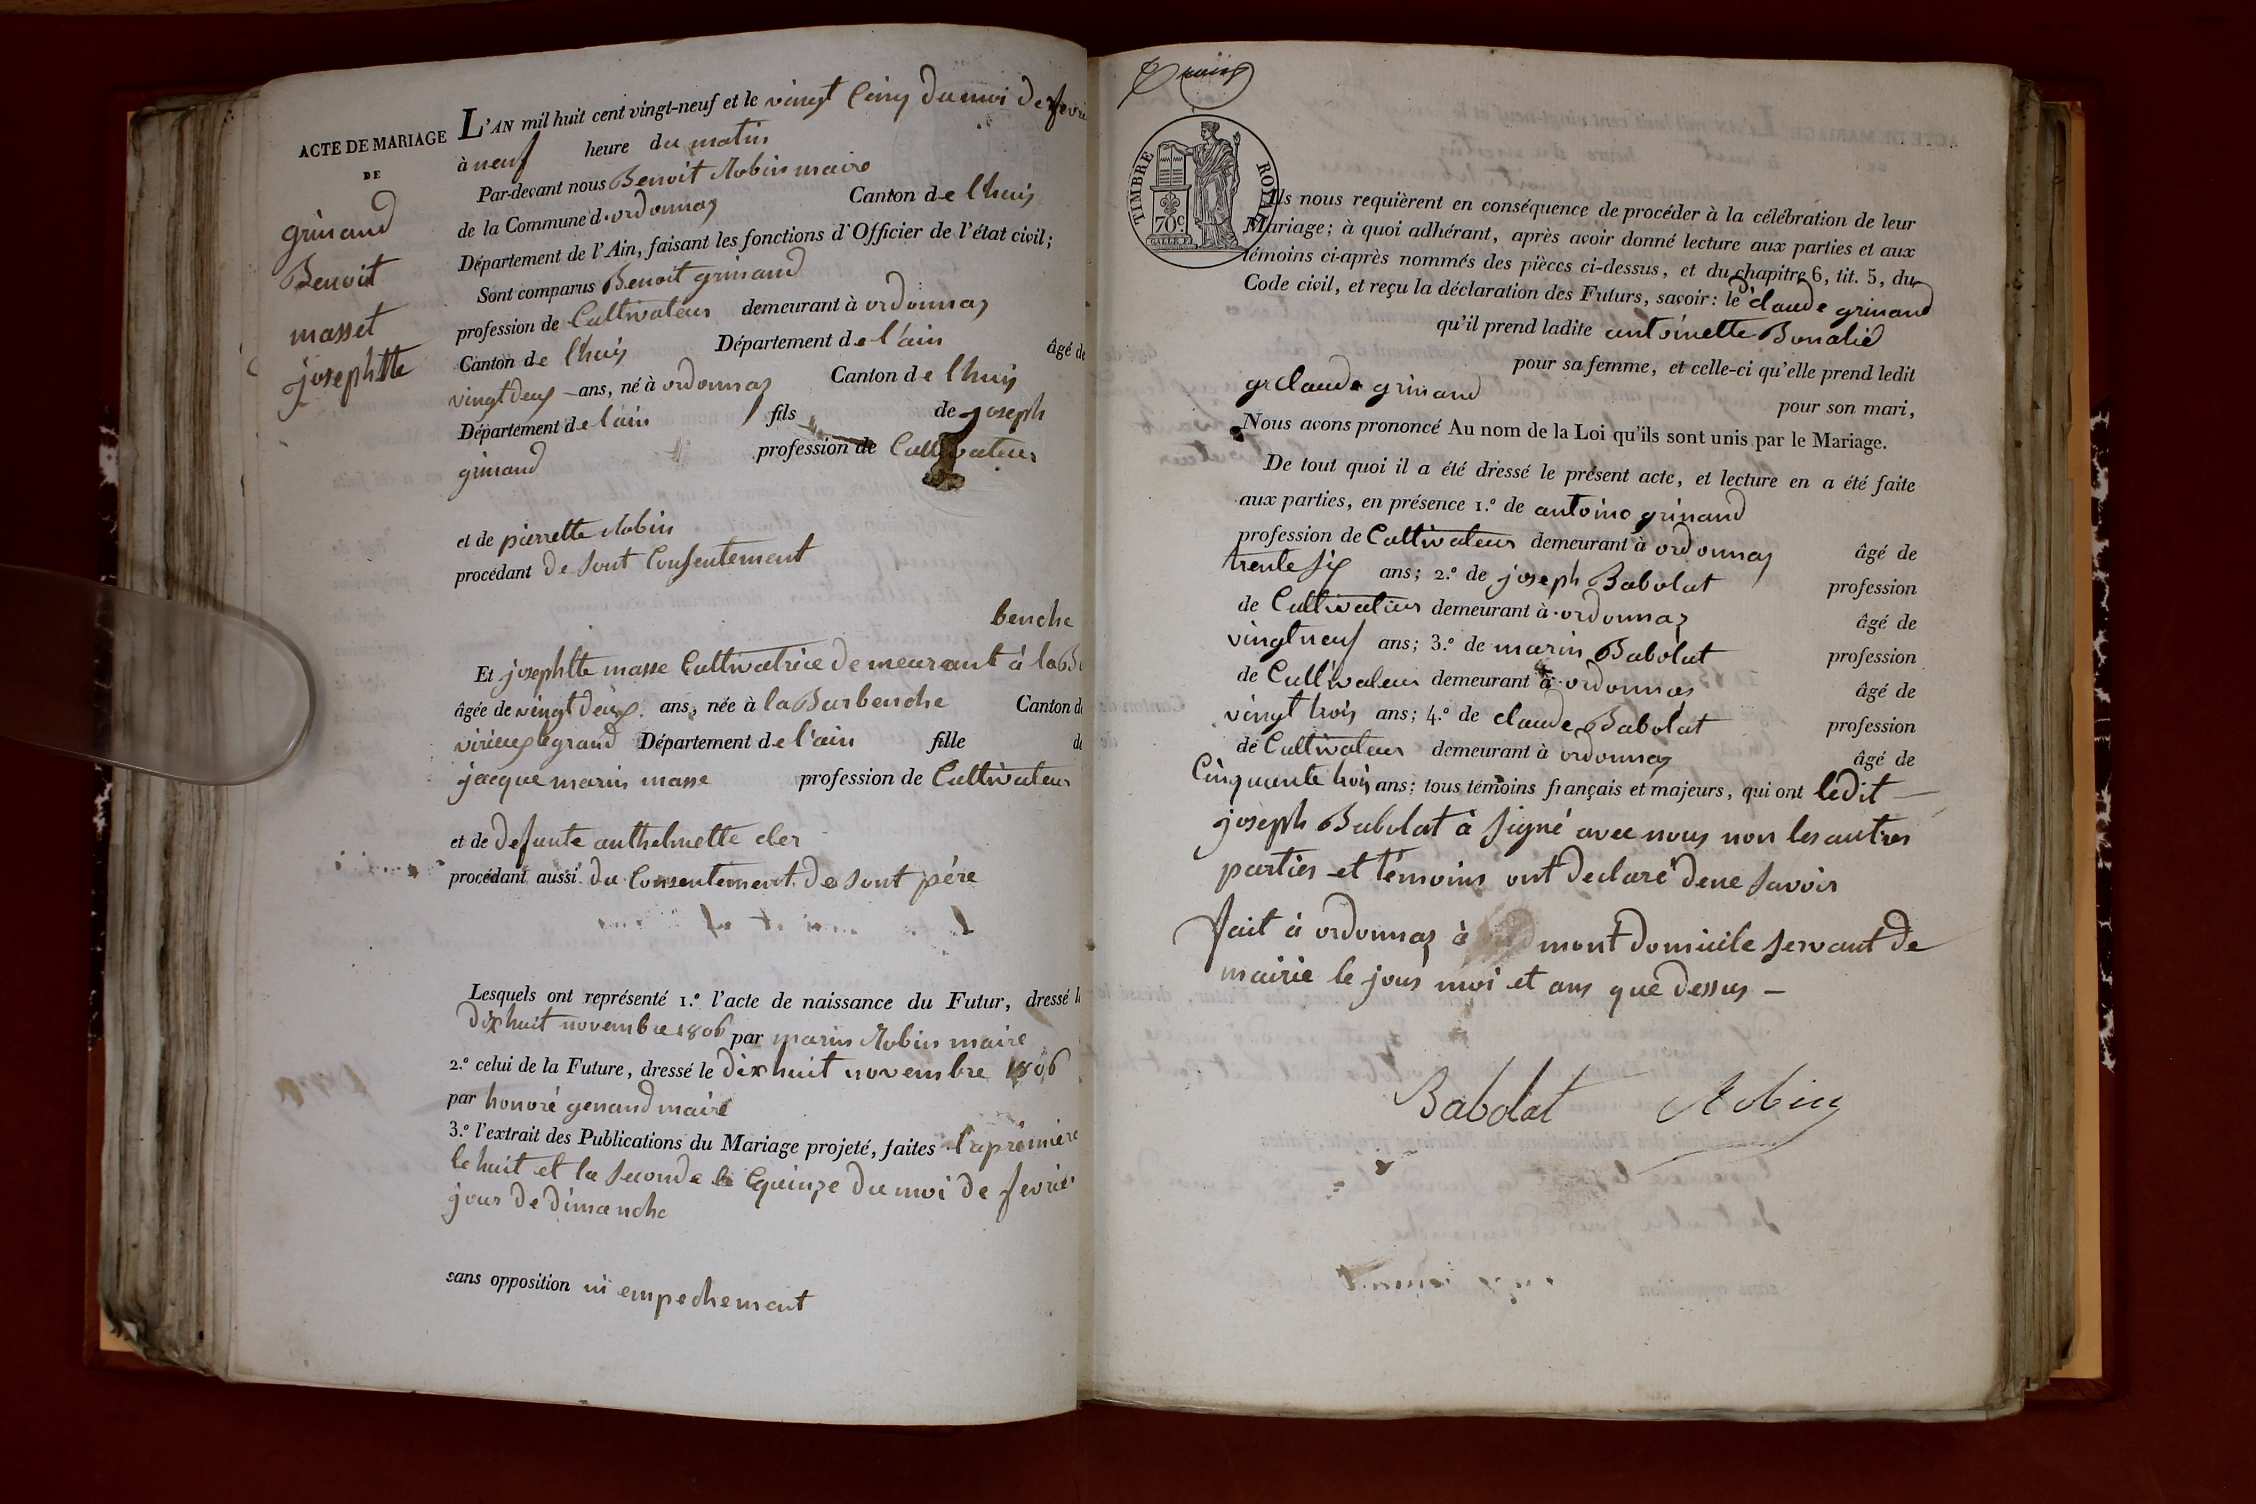 ACTE DE MARIAGE
DE
grinand
Benoit
masset
josephtte
L'AN mil huit cent vingt-neuf et le vingt Cinq du moi de fevri
à neuf heure du matin
Par-devant nous Benoit Robin maire
de la Commune d'ordonnaz Canton de lhuis
Département de l'Ain, faisant les fonctions d'Officier de l'état civil;
Sont comparus Benoit grinand
profession de Cultivateur demeurant à ordonnaz
Canton de lhuis Département de l'ain âgé de
vingt deux ans, né à ordonnaz Canton de lhuis
Département de lain fils de joseph
grinand profession de Cultivateur
et de pierrette Robin
procédant de sont Consentement
benche
Et josephtte masse Cultivatrice demeurant à la B
âgée de vingt deux ans, née à la Burbenche Canton de
virieux legrand Département de l'ain fille de
jacque marin masse profession de Cultivateur
et de defunte anthelmette cler
procédant aussi du Consentement de sont père
Lesquels ont représenté 1.º l'acte de naissance du Futur, dressé le
dix huit novembre 1806 par marin Robin maire
2.º celui de la Future, dressé le dix huit novembre 1806
par honoré genand maire
3.º l'extrait des Publications du Mariage projeté, faites la première
le huit et la seconde le Quinze du moi de fevrier
jour de dimanche
sans opposition ni empechement
TIMBRE ROYAL
70 C
Ils nous requièrent en conséquence de procéder à la célébration de leur
Mariage; à quoi adhérant, après avoir donné lecture aux parties et aux
témoins ci-après nommés des pièces ci-dessus, et du chapitre 6, tit. 5, du
Code civil, et reçu la déclaration des Futurs, savoir: le claude grinand
qu'il prend ladite antoinette Bonalid
pour sa femme, et celle-ci qu'elle prend ledit
gr claude grinand pour son mari,
Nous avons prononcé Au nom de la Loi qu'ils sont unis par le Mariage.
De tout quoi il a été dressé le présent acte, et lecture en a été faite
aux parties, en présence 1.º de antoine grinand
profession de Cultivateur demeurant à ordonnaz âgé de
trente six ans; 2.º de joseph Babolat profession
de Cultivateur demeurant à ordonnaz âgé de
vingt neuf ans; 3.º de marin Babolat profession
de Cultivateur demeurant à ordonnas âgé de
vingt trois ans; 4.º de claude Babolat profession
de Cultivateur demeurant à ordonnaz âgé de
Cinquante trois ans; tous témoins français et majeurs, qui ont ledit
joseph Babolat à signé avec nous non les autres
parties et témoins ont declaré dene savoir
fait à ordonnaz à mont domicile servant de
mairie le jour moi et ans que dessus —
Babolat Robin